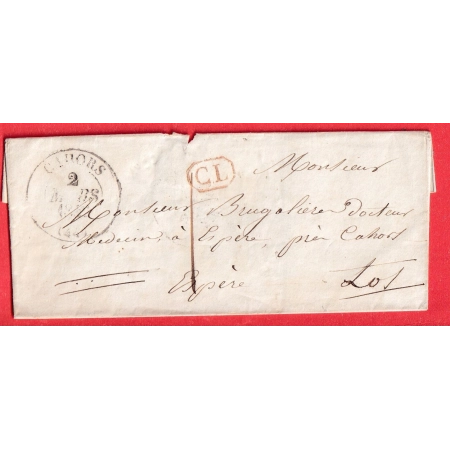 CAHORS
2
MARS
C.L.
Monsieur
Monsieur Brugalières docteur
Medecin, à Espère, près Cahors
Espère Lot